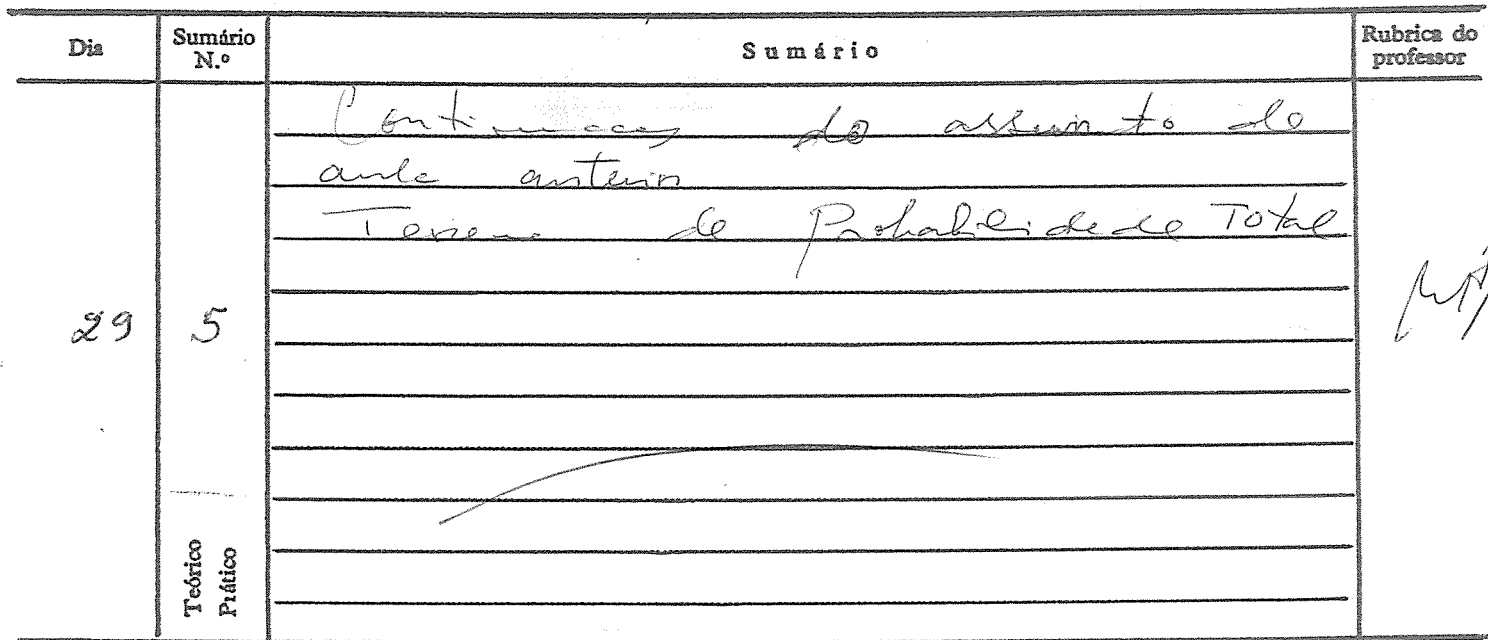 Dia
Sumário N.º
Sumário
Rubrica do professor
Continuação do assunto da
aula anterior
Teorema da Probabilidade Total
29
5
Teórico
Prático